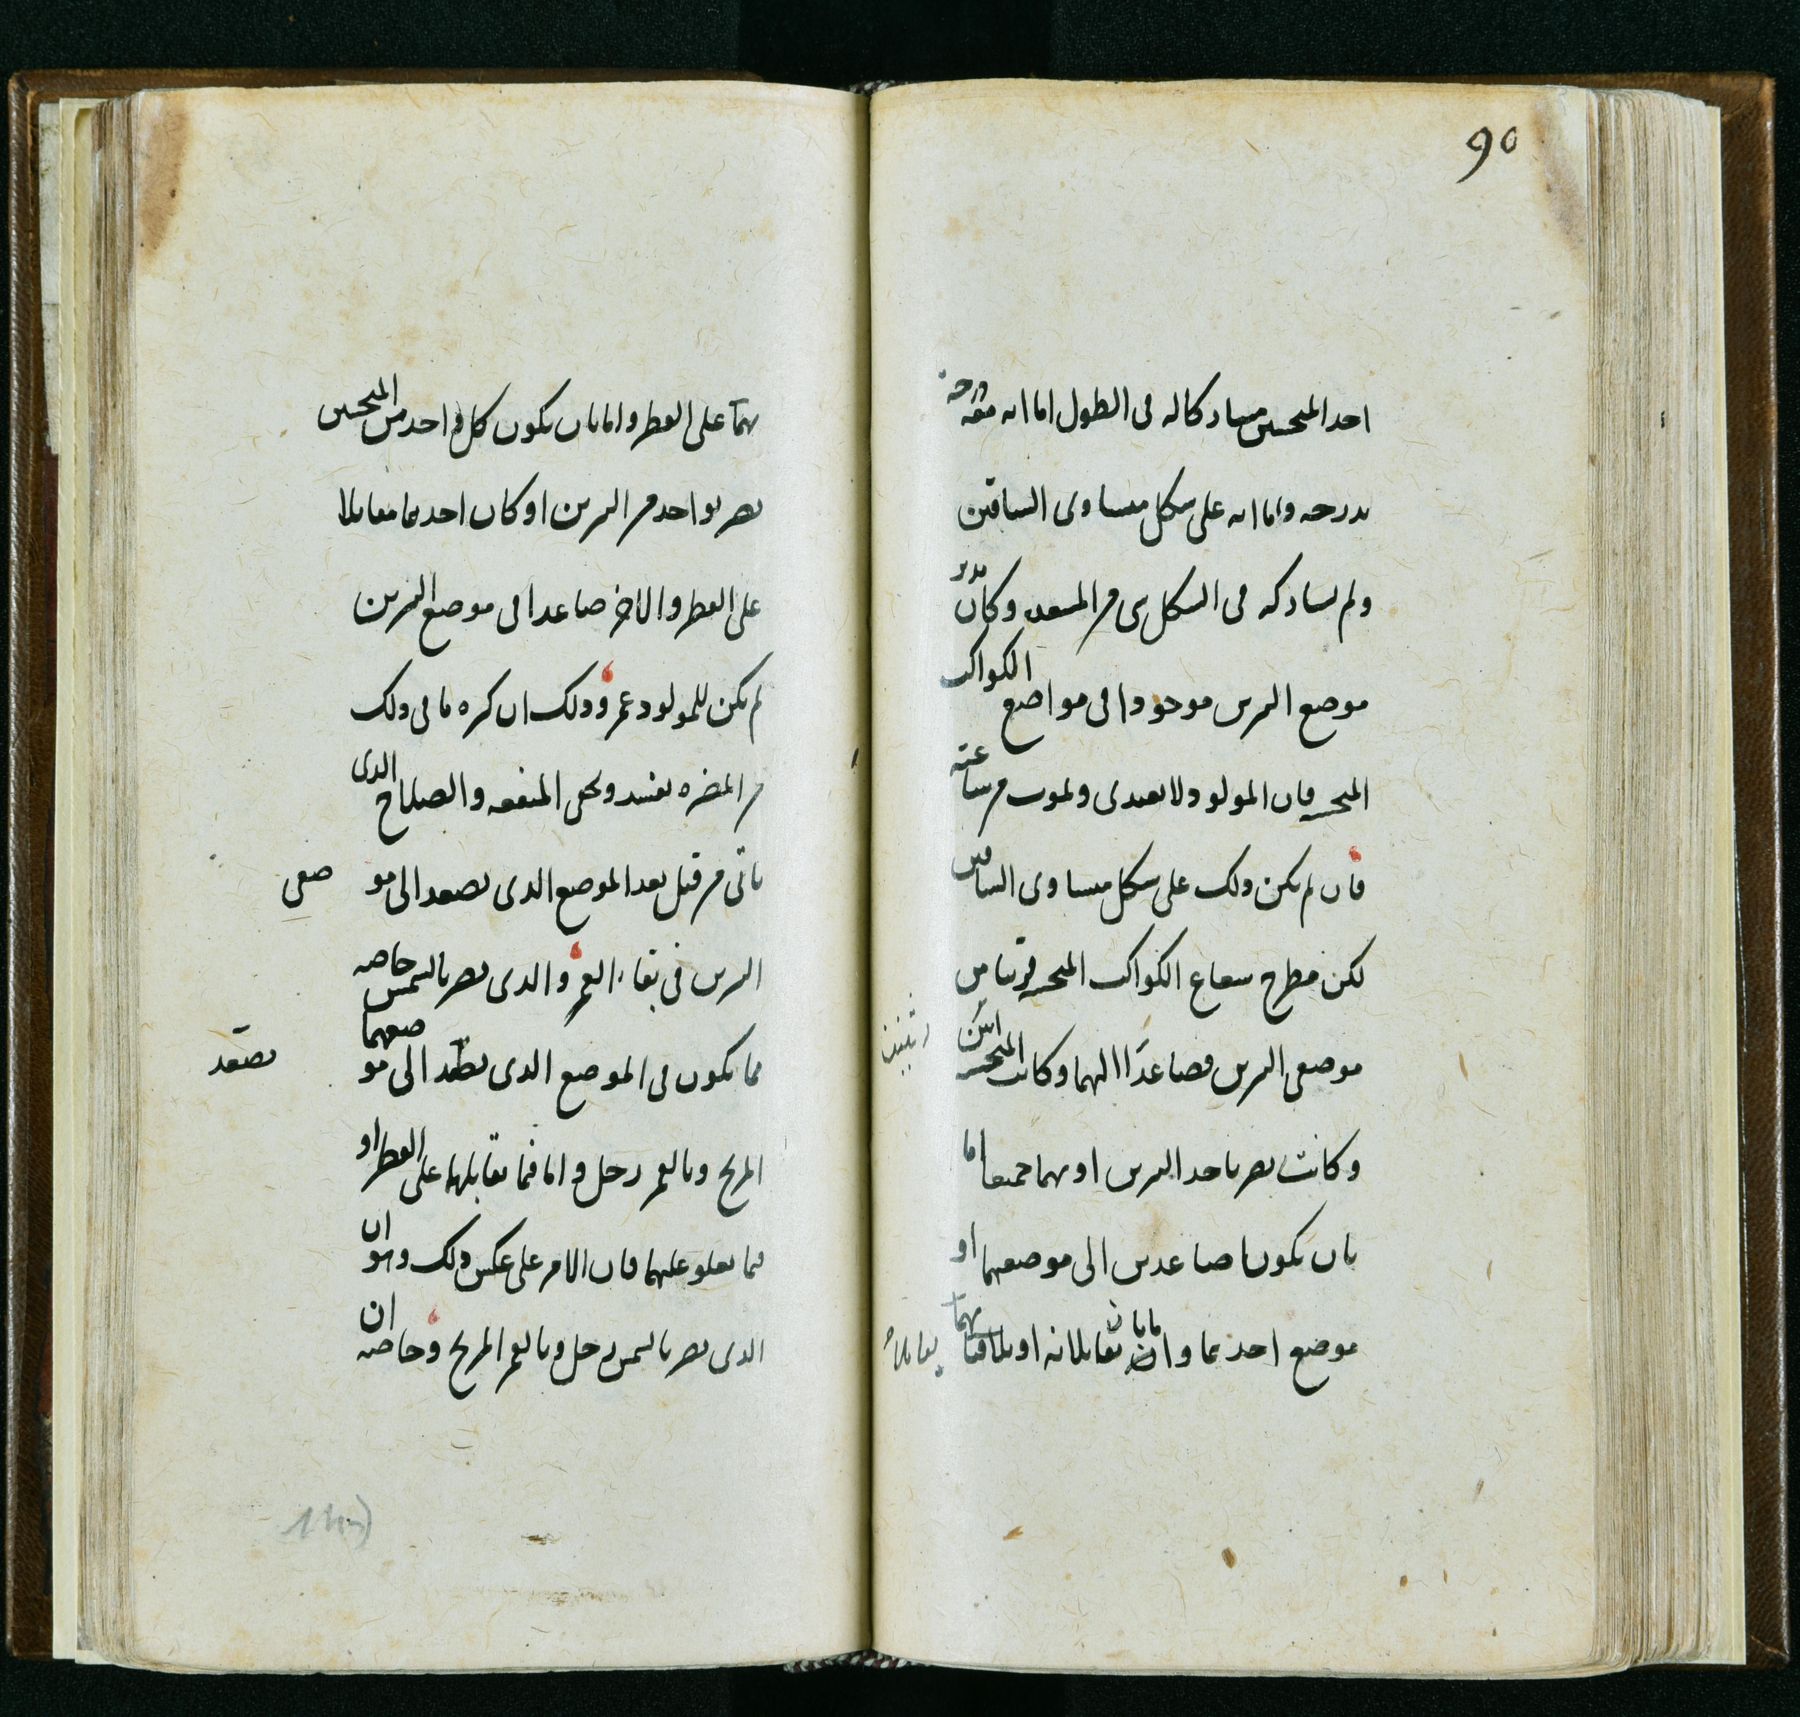 90
احد المنحسين مساركا له فى الطول اما انه معه درجة
بدرجه واما انه على شكل متساوى الساقين
ولم يشاركه فى الشكل شى من المسعده وكان مدبر
موضع النيرين موجودا فى مواضع الكواكب
المنحسه فان المولود لا يغتذى ويموت من ساعته
فان لم يكن ذلك على شكل متساوى الساقين
لكن مطرح شعاع الكواكب المنحسه قريبا من
موضعى النيرين وصاعدا اليهما وكانت المنحسه اثنين
وكانت يضر باحد النيرين او بهما جميعا اما
بان يكونا صاعدين الى موضعهما او
موضع احدهما واما بان يقابلانه او يقابلا
بهما على القطر واما بان يكون كل واحد من المنحسين
يضر بواحد من النيرين او كان احدهما مقابلا
على القطر والاخر صاعدا فى موضع النيرين
لم يكن للمولود عمر وذلك ان كثره ما فى ذلك
من المضره يفسد ويمحى المنفعه والصلاح الذى
ياتى من قبل بعد الموضع الذى يصعد الى مو ضعى
النيرين فى بقاء العمر والذى يضر بالشمس خاصه
مما يكون فى الموضع الذى يصعد الى مو ضعهما
المريخ وبالقمر زحل واما فيما يقابلها على القطر او
فيما يعلو عليهما فان الامر على عكس ذلك وهو ان
الذى يضر بالشمس زحل وبالقمر المريخ وخاصه ان